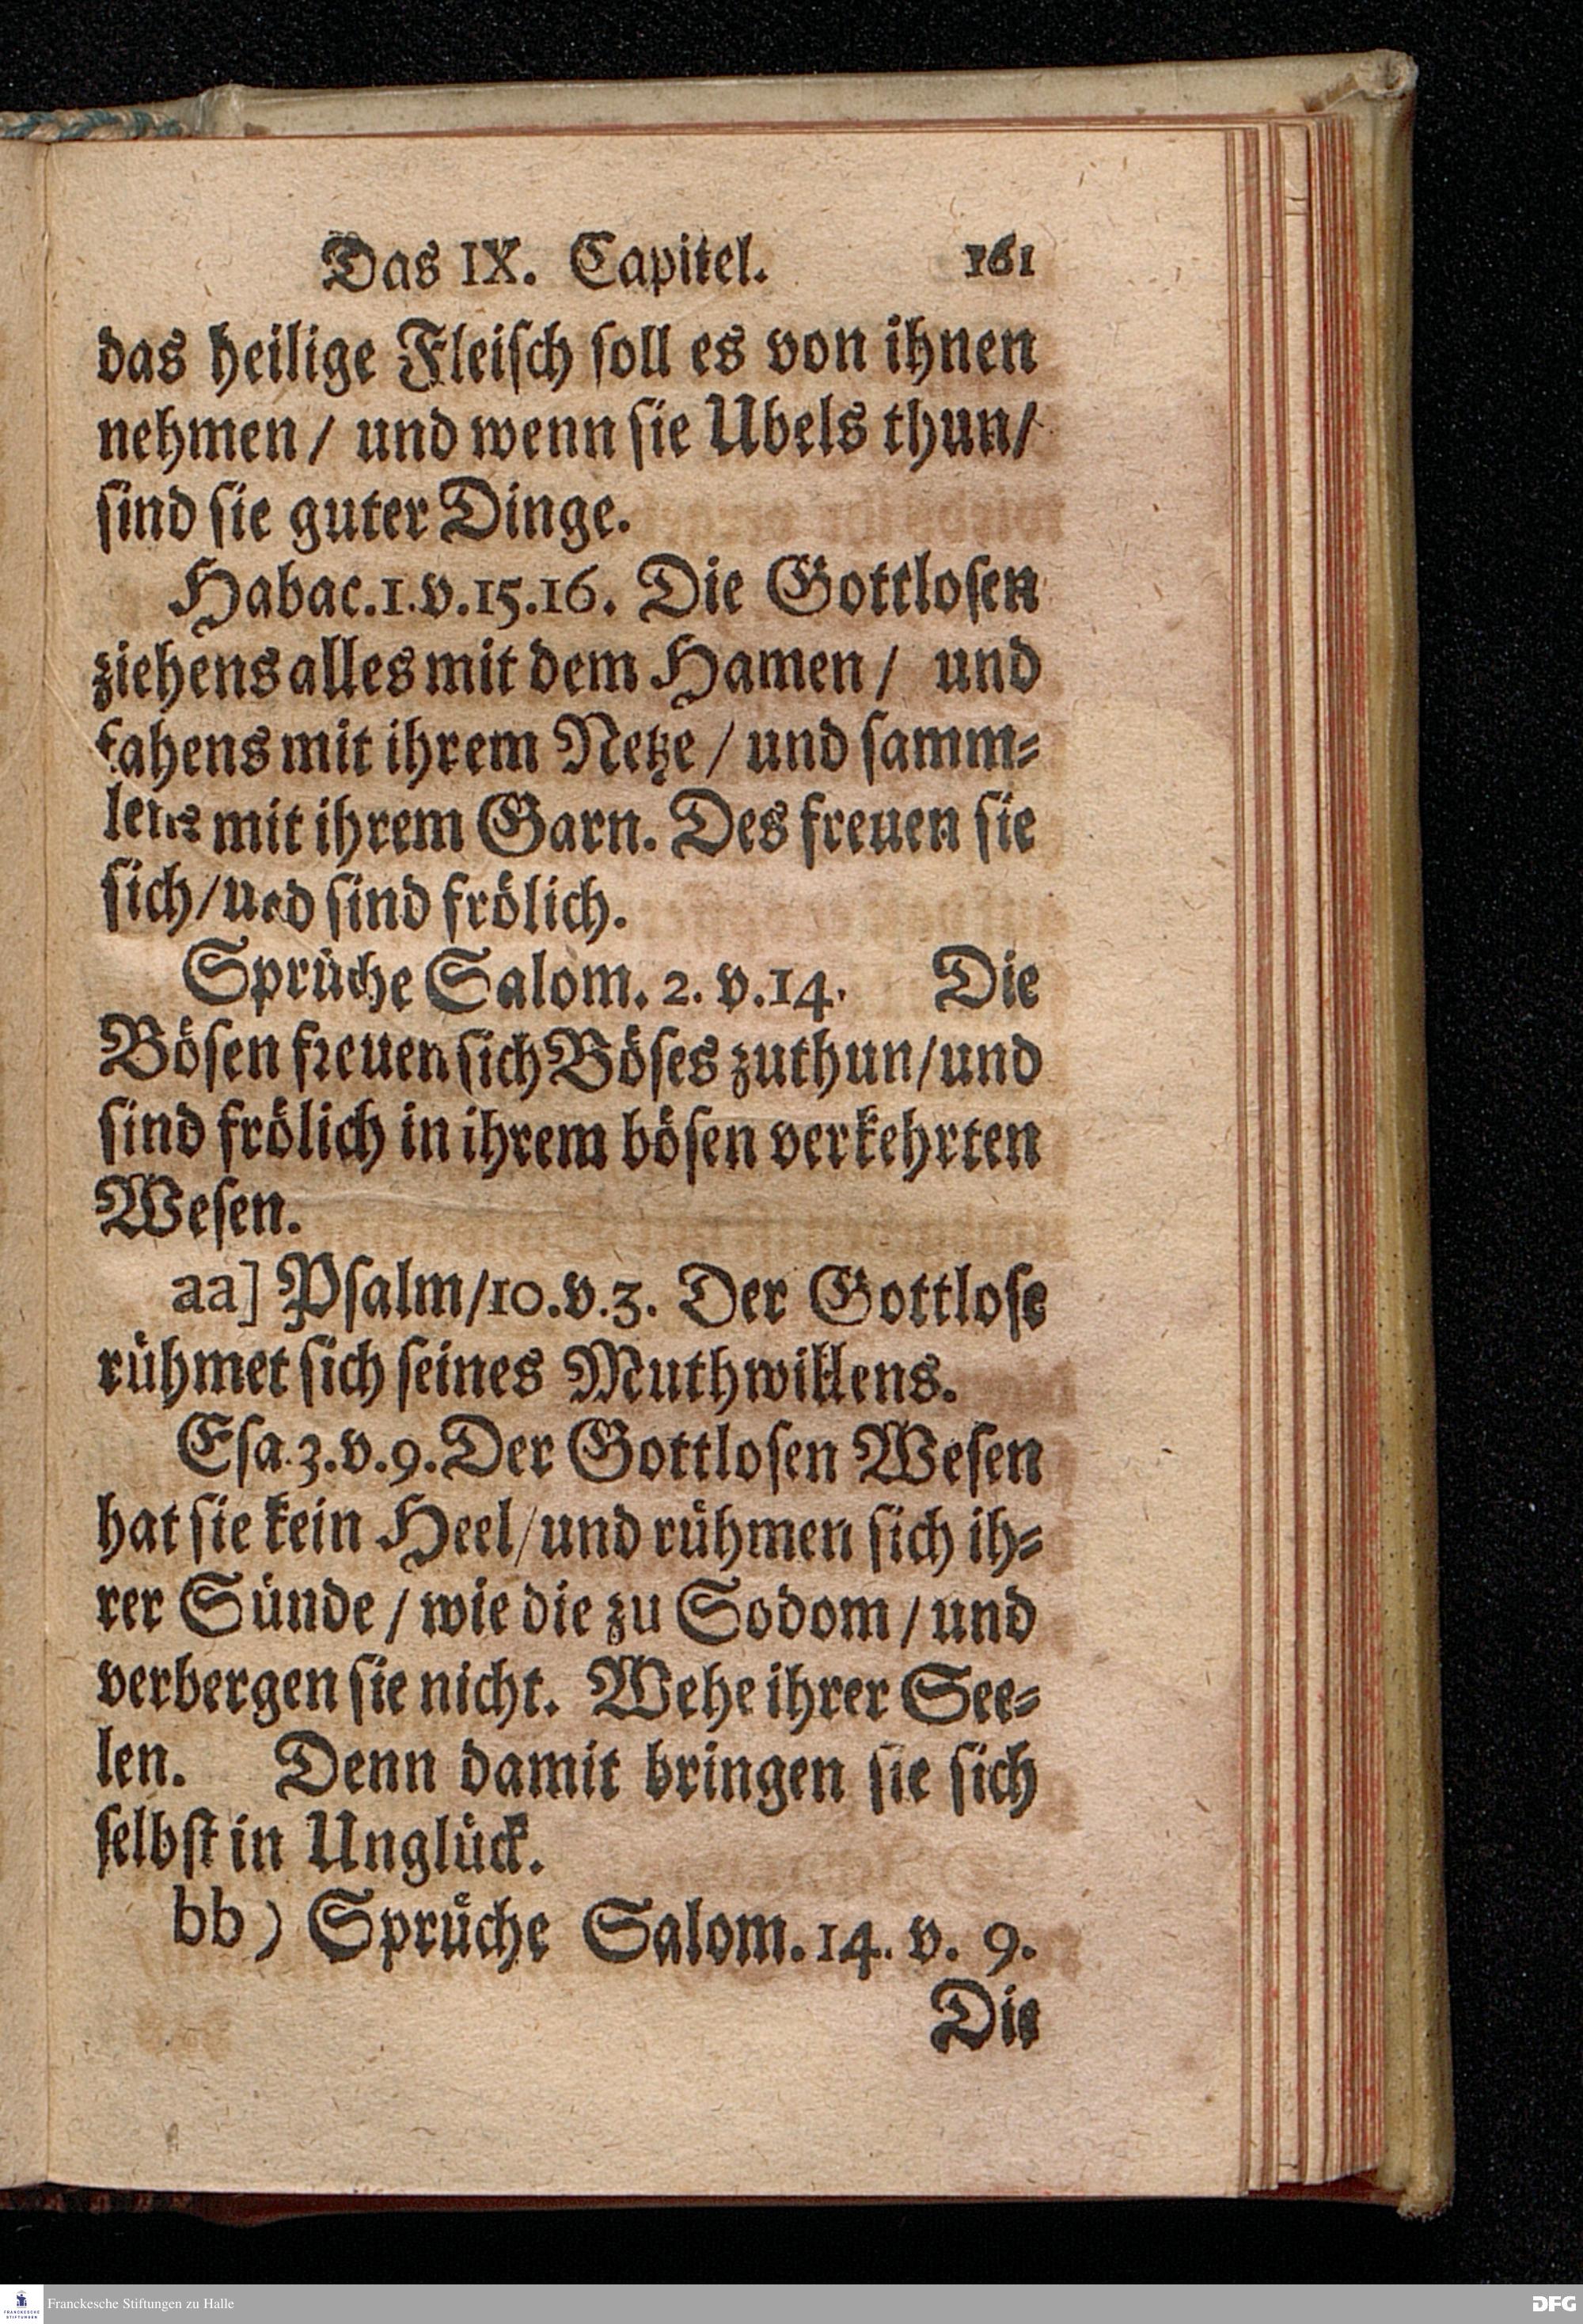 Das IX. Capitel. 161
das heilige Fleisch soll es von ihnen
nehmen / und wenn sie Ubels thun/
sind sie guter Dinge.
Habac.1.v.15.16. Die Gottlosen
ziehens alles mit dem Hamen / und
fahens mit ihrem Netze / und samm-
lens mit ihrem Garn. Des freuen sie
sich/und sind frölich.
Sprüche Salom. 2. v.14. Die
Bösen freuen sich Böses zuthun/und
sind frölich in ihrem bösen verkehrten
Wesen.
aa] Psalm/10.v.3. Der Gottlose
rühmet sich seines Muthwillens.
Esa.3.v.9.Der Gottlosen Wesen
hat sie kein Heel/und rühmen sich ih-
rer Sünde / wie die zu Sodom / und
verbergen sie nicht. Wehe ihrer See-
len. Denn damit bringen sie sich
selbst in Unglück.
bb) Sprüche Salom.14. v. 9.
Die
Franckesche Stiftungen zu Halle
DFG